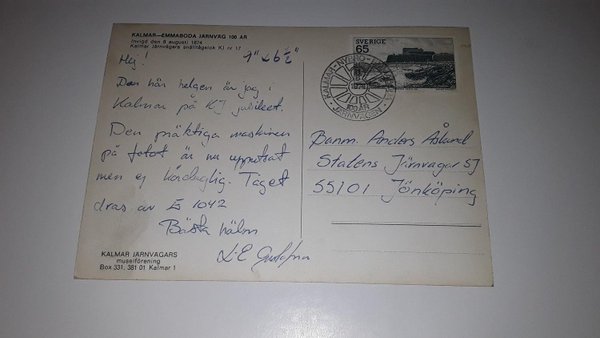 KALMAR—EMMABODA JÄRNVÄG 100 ÅR
Invigd den 6 augusti 1874
Kalmar Järnvägars snälltågslok KJ nr 17
Hej!
Den här helgen är jag i
Kalmar på KJ jubileet.
Den präktiga maskinen
på fotot är nu uppeldat
men ej kördugligt. Tåget
dras av E 1042
Bästa hälsn
L-E Gustafsson
KALMAR JÄRNVÄGARS
museiförening
Box 331, 381 01 Kalmar 1
SVERIGE
65
KALMAR-NYBRO-
100 ÅR
JÄRNVÄGEN
Banm. Anders Åsland
Statens Järnvägar SJ
55101 Jönköping